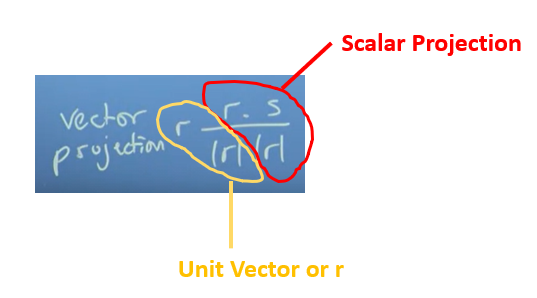 Scalar Projection
vector projection r r . s
|r| |r|
Unit Vector or r